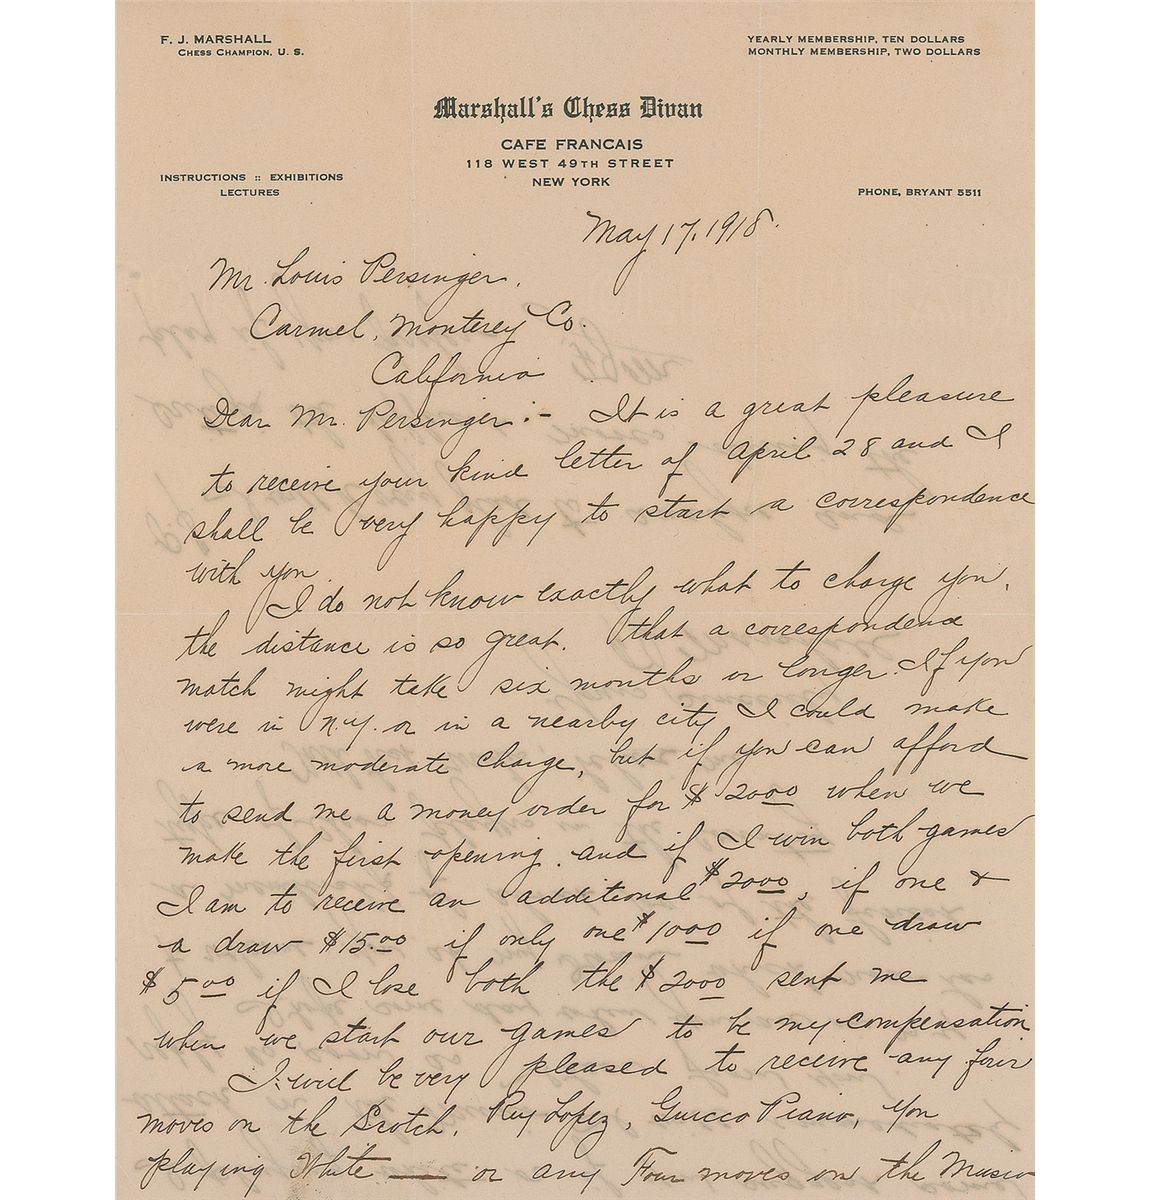 F. J. MARSHALL
CHESS CHAMPION, U. S.
YEARLY MEMBERSHIP, TEN DOLLARS
MONTHLY MEMBERSHIP, TWO DOLLARS
Marshall's Chess Divan
CAFE FRANCAIS
118 WEST 49TH STREET
NEW YORK
INSTRUCTIONS :: EXHIBITIONS
LECTURES
PHONE, BRYANT 5511
May 17, 1918.
Mr. Louis Persinger,
Carmel, Monterey Co.
California
Dear Mr. Persinger :- It is a great pleasure
to receive your kind letter of April 28 and I
shall be very happy to start a correspondence
with you.
I do not know exactly what to charge you,
the distance is so great. that a correspondence
match might take six months or longer. If you
were in N.Y. or in a nearby city I could make
a more moderate charge, but if you can afford
to send me a money order for $2000 when we
make the first opening. and if I win both games
I am to receive an additional $2000, if one &
a draw $15.00 if only one $1000 if one draw
$500 if I lose both the $2000 sent me
when we start our games to be my compensation
I will be very pleased to receive any four
moves on the Scotch, Ruy Lopez, Guicco Piano, you
playing White — or any Four moves on the Muzio